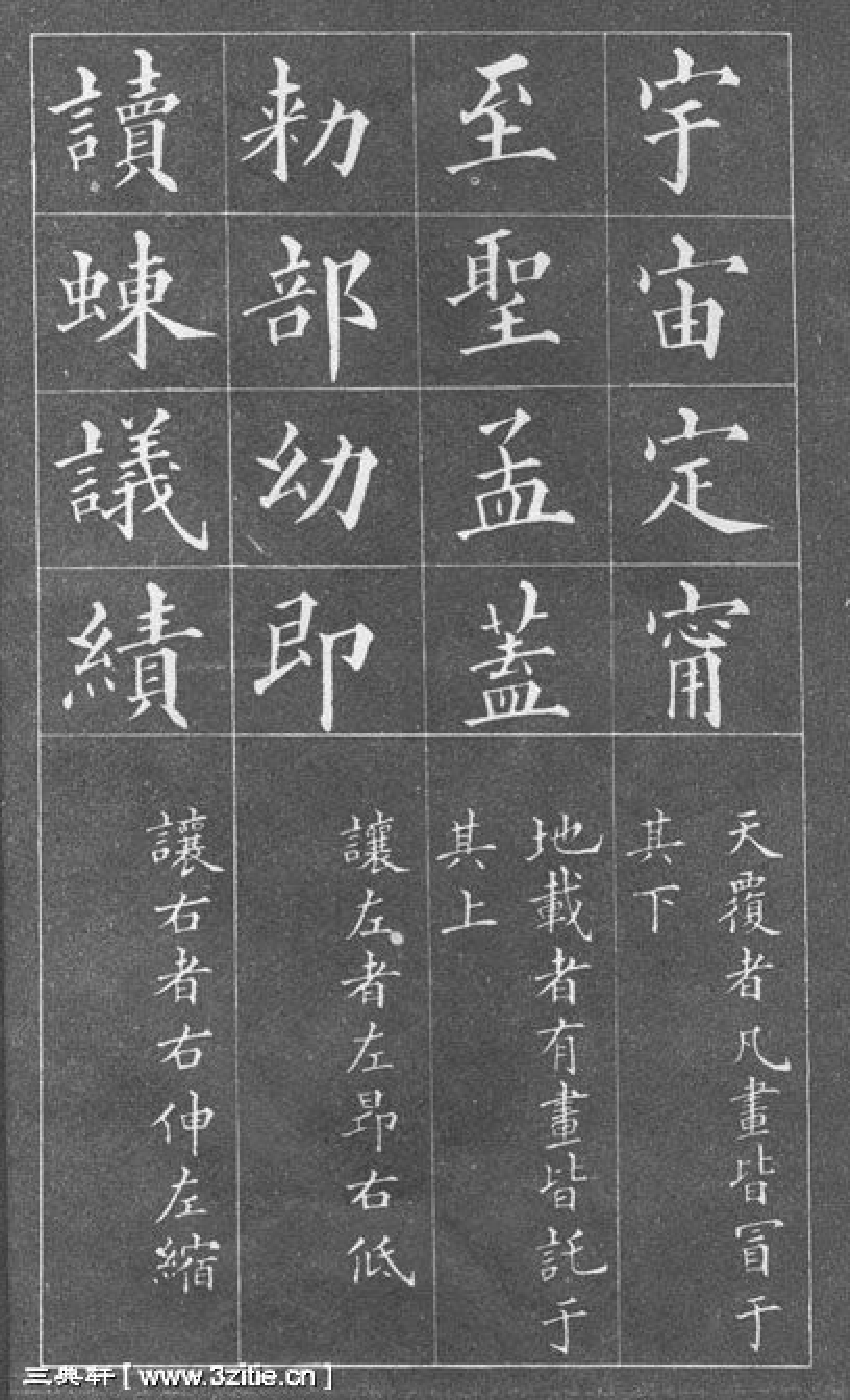 宇宙定甯
天覆者凡畫皆冐于
其下
至聖孟蓋
地載者有畫皆託于
其上
勑部幼即
讓左者左昂右低
讀蝀議績
讓右者右伸左縮
三典轩[www.3zitie.cn]